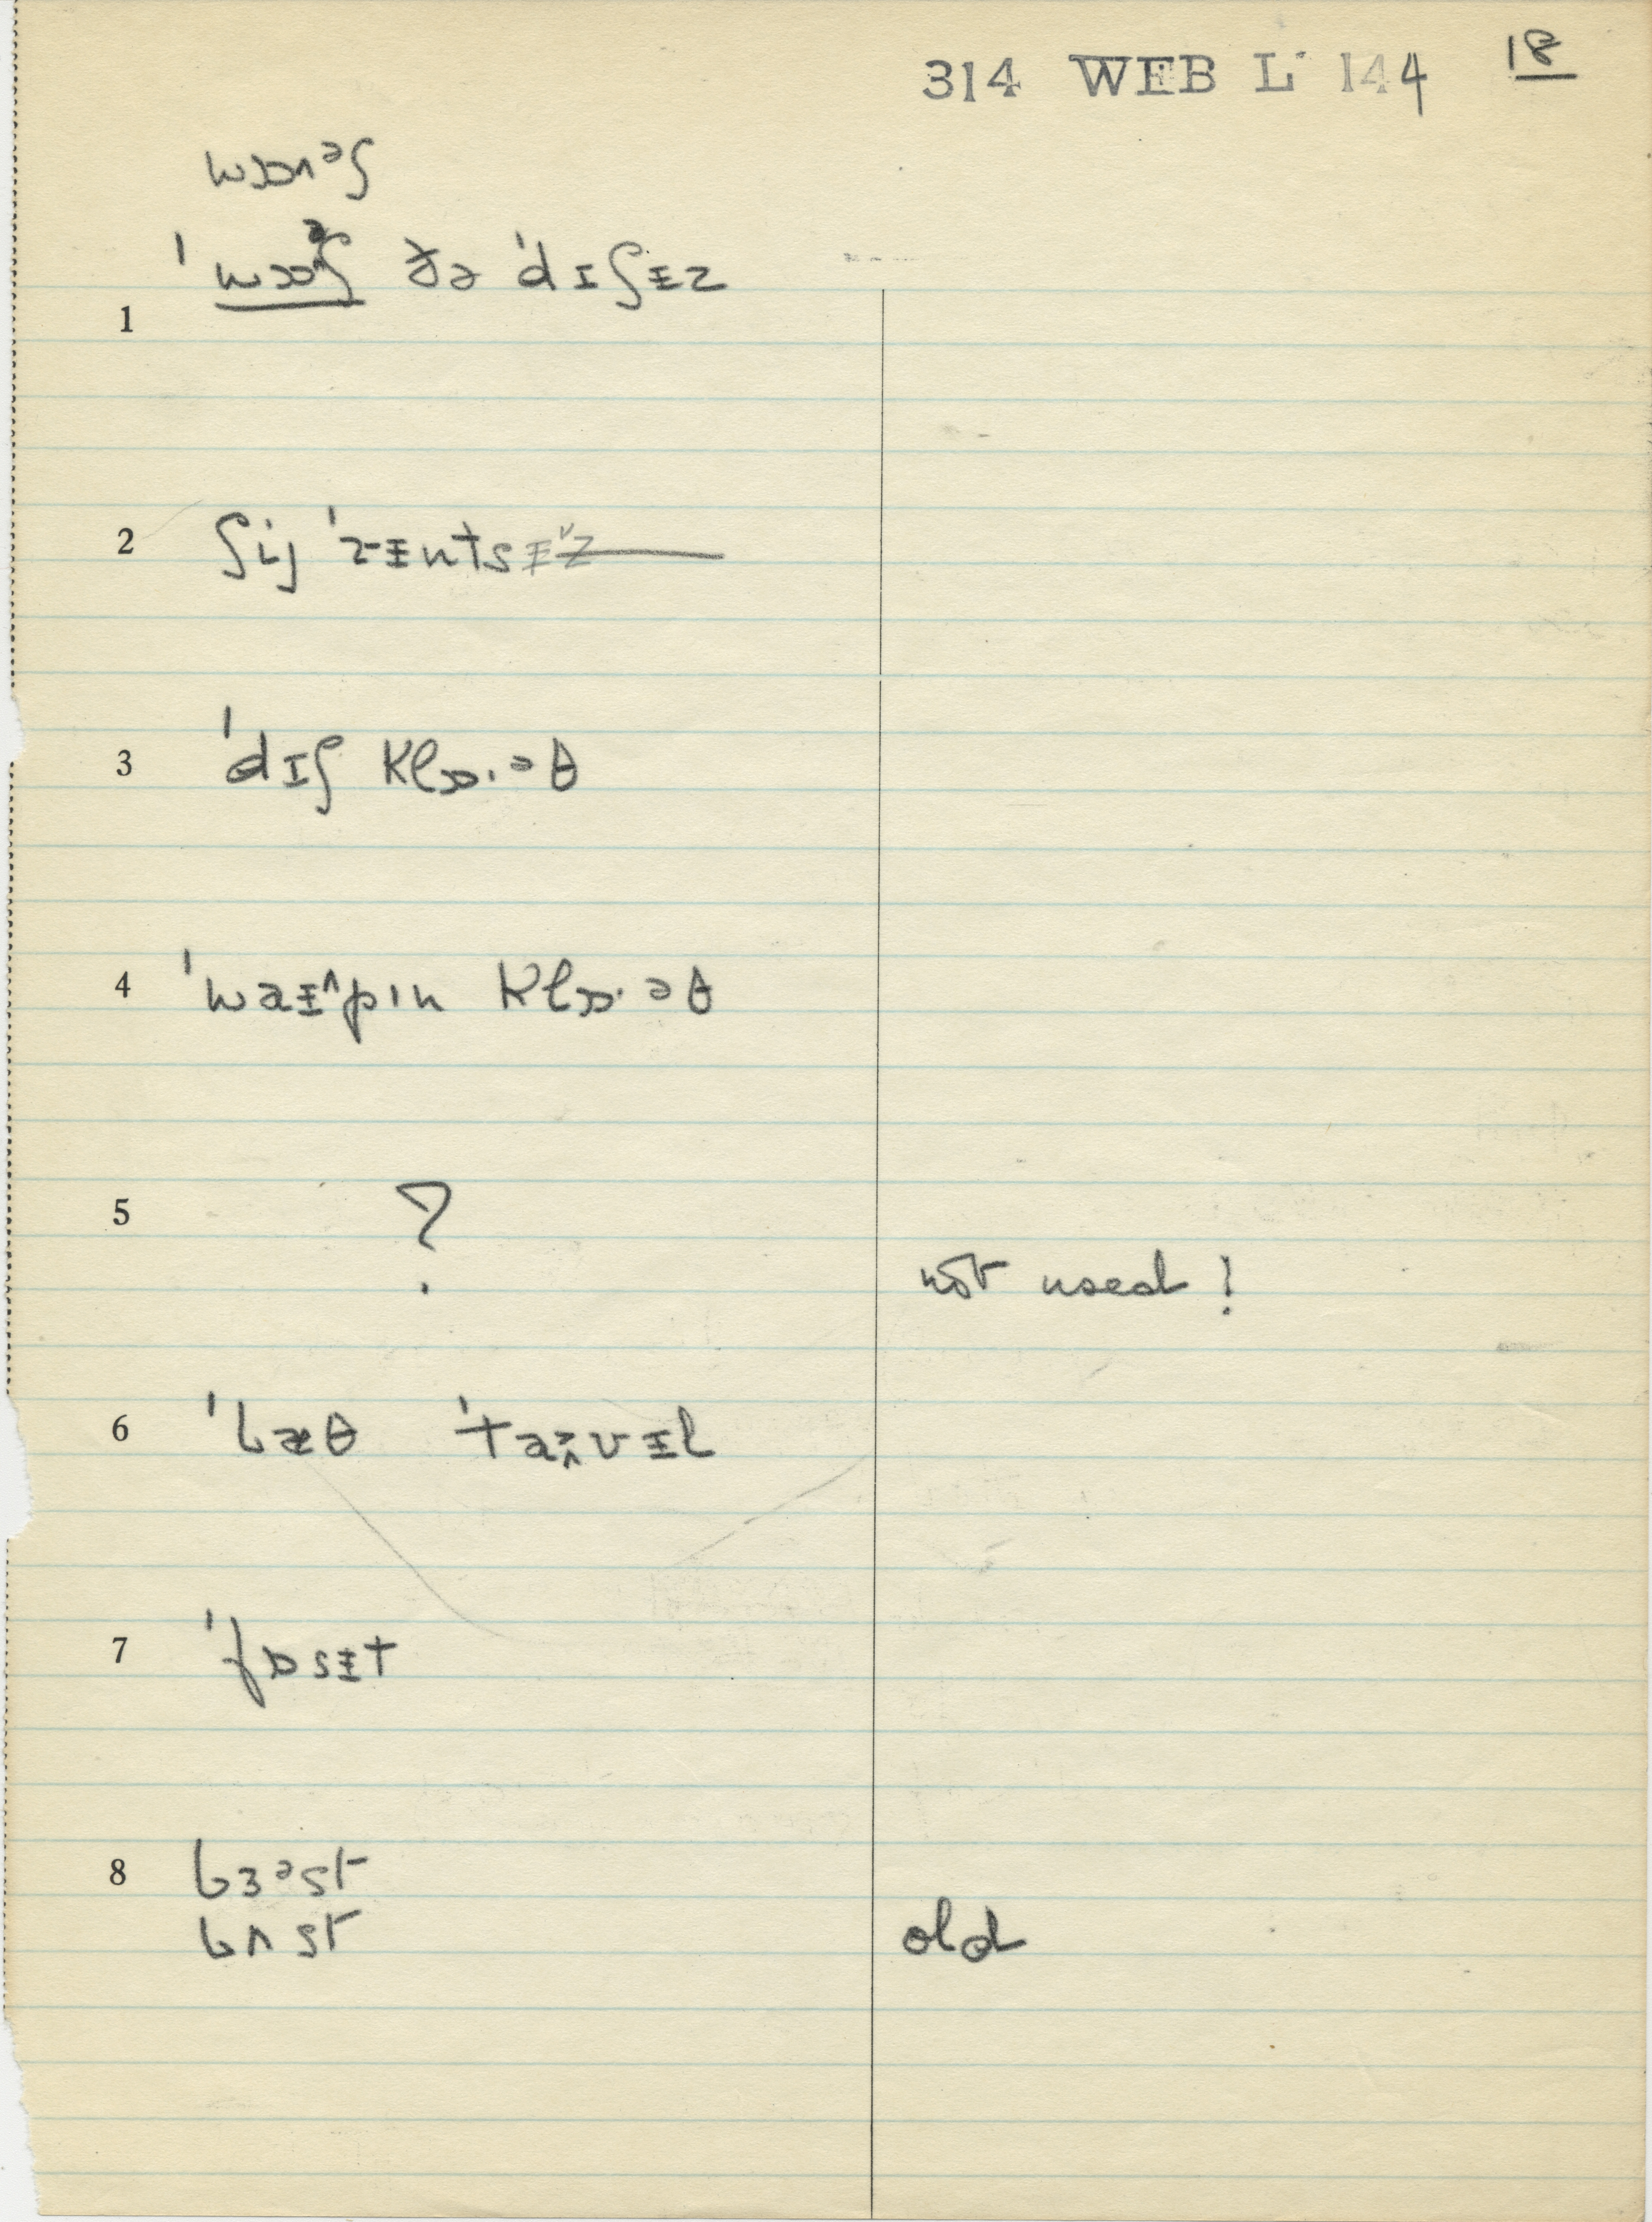 314 WEB L 144 18
wɒɒʌᵊʃ
ˈwɒɒᵊʃ ðə ˈdɪʃɨz
1
2 ʃij ˈrɨntsɨz
3 ˈdɪʃ klɒ·əθ
4 ˈwaɨ^pɪn klɒ·əθ
5 ?
not used!
6 ˈbæθ ˈtaɚvɨl
7 ˈfɒsɨt
8 bɜᵊst
bʌst old